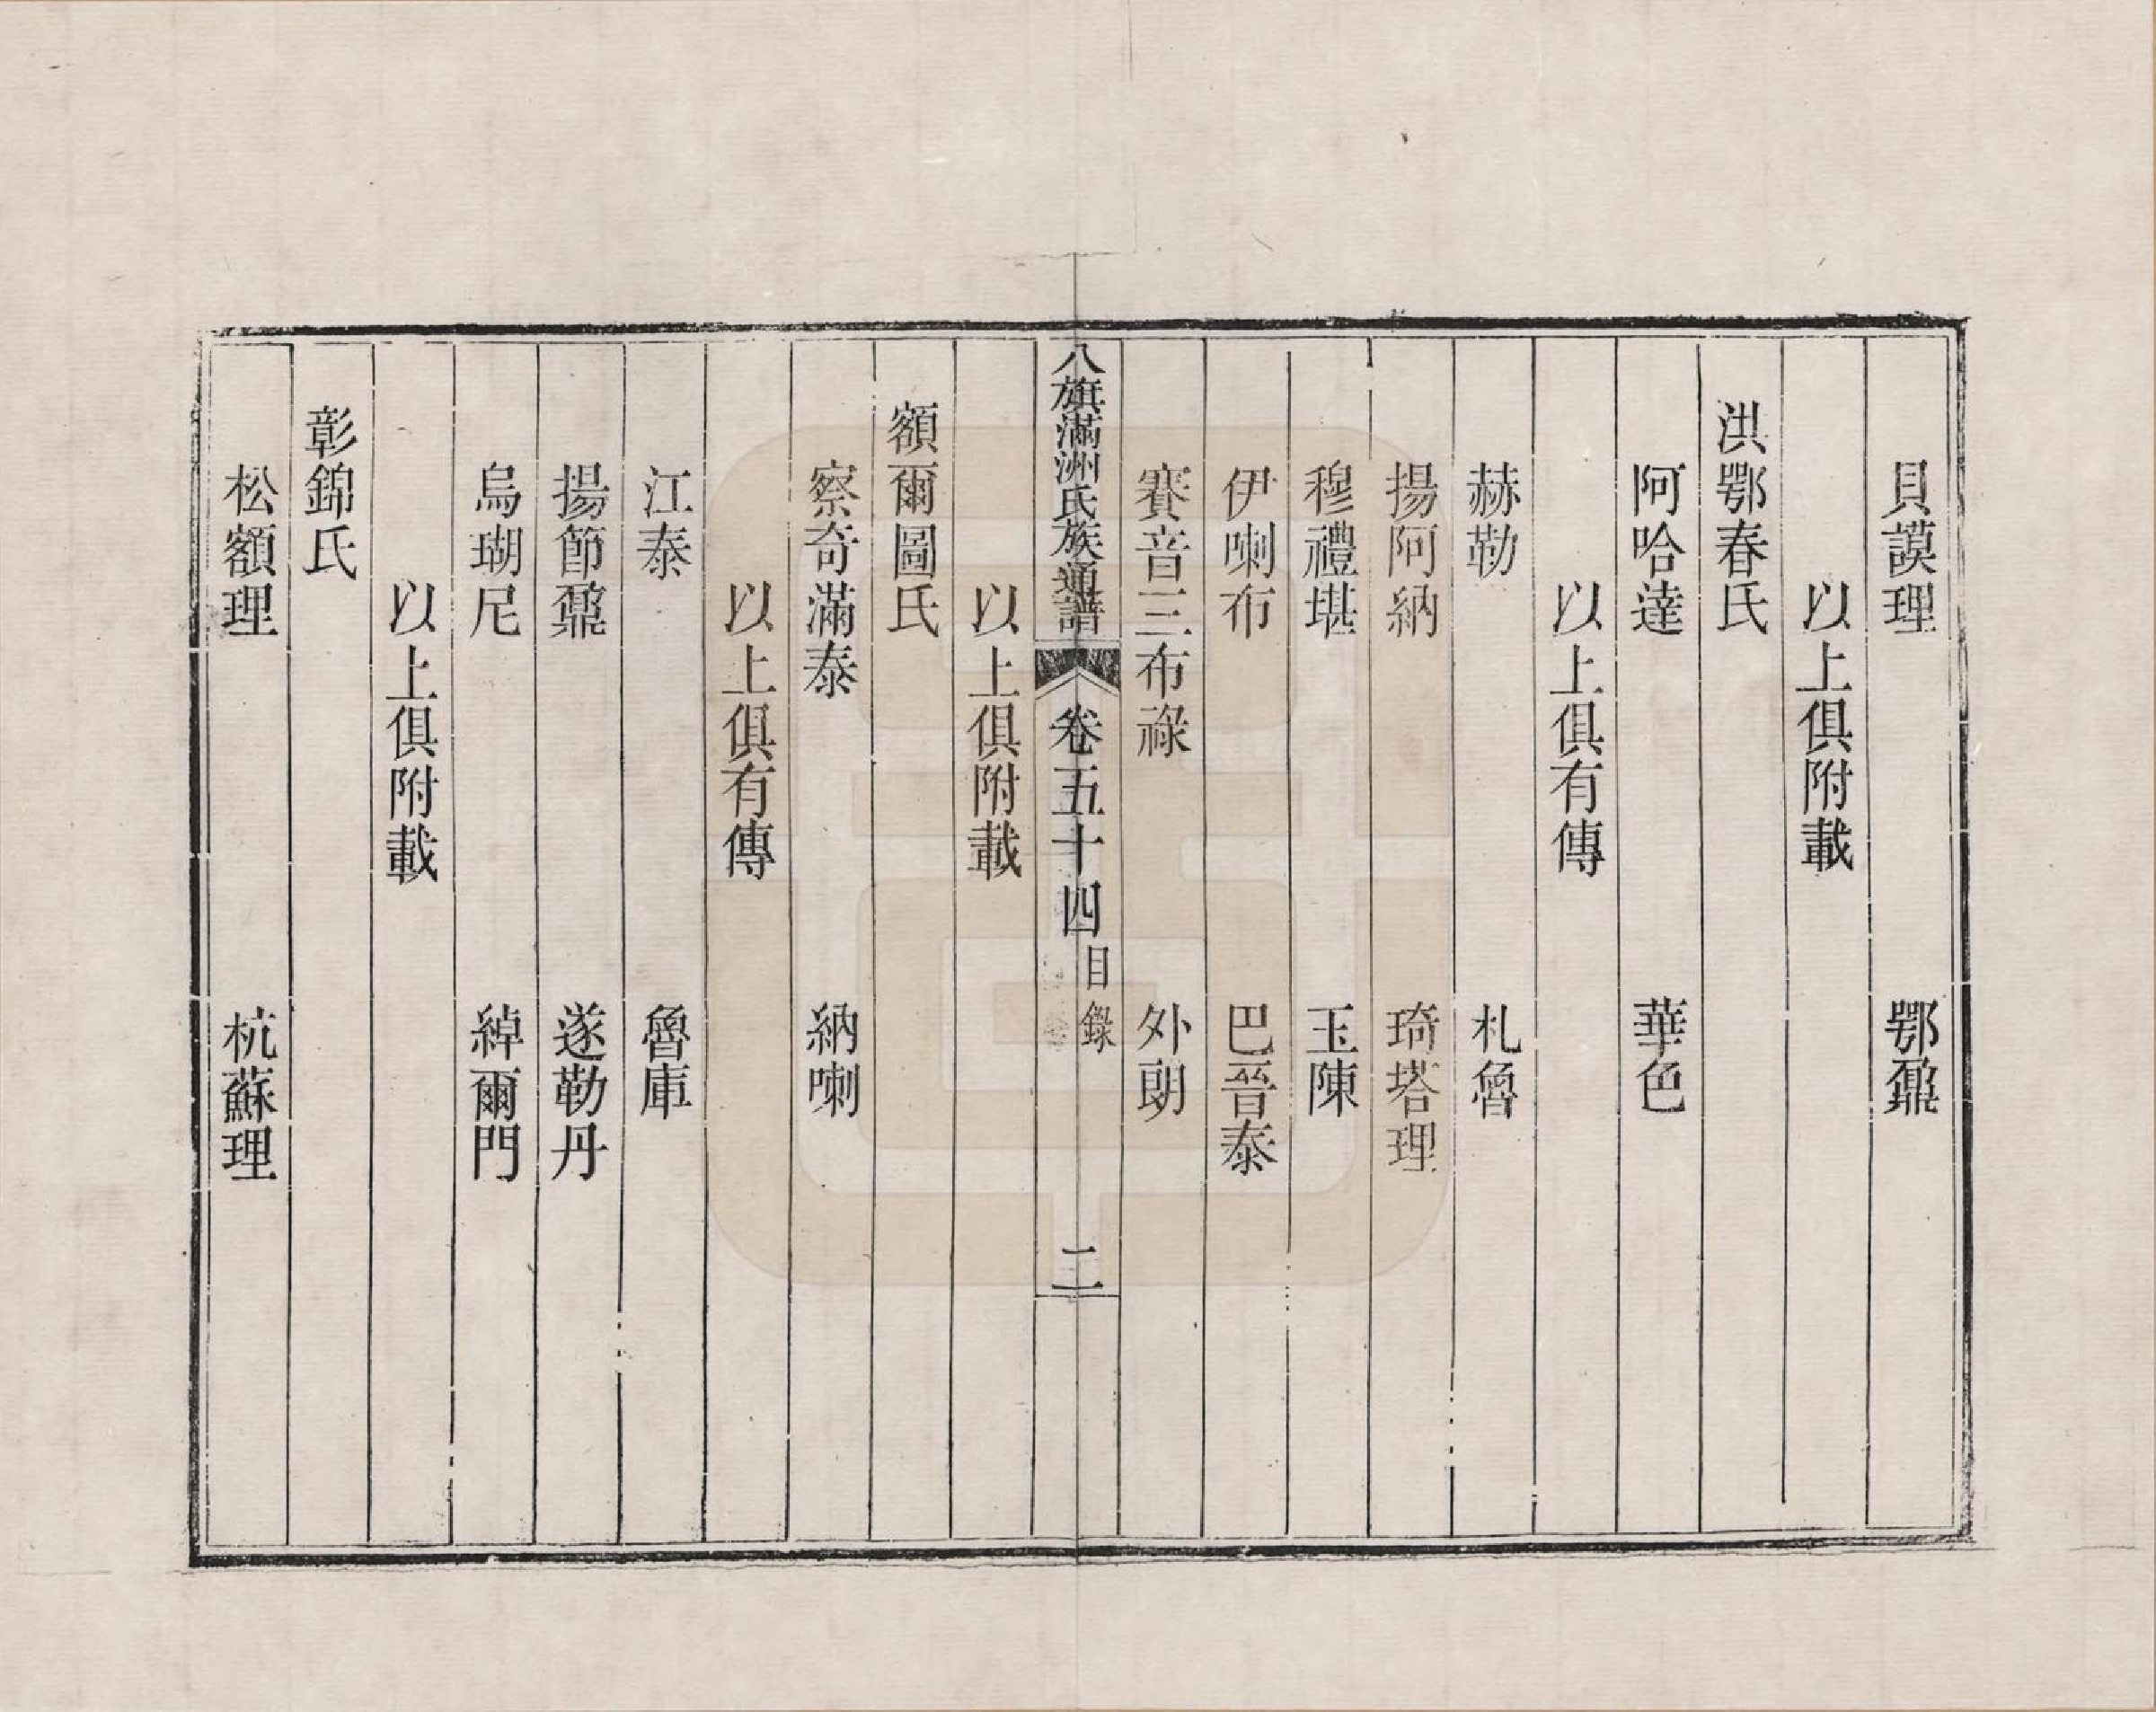 貝謨理　鄂鼐
以上俱附載
洪鄂春氏
阿哈達　華色
以上俱有傳
赫勒　札魯
揚阿納　琦塔理
穆禮堪　玉陳
伊喇布　巴晉泰
賽音三布祿　外朗
八旗滿洲氏族通譜　卷五十四　目錄　二
以上俱附載
額爾圖氏
察奇滿泰　納喇
以上俱有傳
江泰　魯庫
揚節鼐　遂勒丹
烏瑚尼　綽爾門
以上俱附載
彰錦氏
松額理　杭蘇理